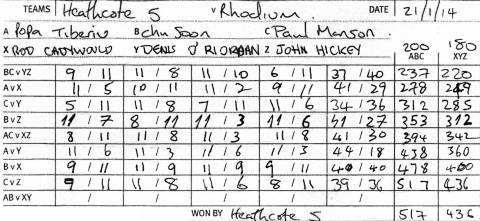 TEAMS Heathcote 5 v Rhodium. DATE 21/1/14
A Popa Tiberiu B Chu Soon C Paul Manson.
X ROD CADYWOULD Y DENIS O'RIORDAN Z JOHN HICKEY 200 ABC 180 XYZ
BCvYZ 9 / 11 11 / 8 11 / 10 6 / 11 37 / 40 237 220
AvX 11 / 5 10 / 11 11 / 2 9 / 11 41 / 29 278 249
CvY 5 / 11 11 / 8 7 / 11 11 / 6 34 / 36 312 285
BvZ 11 / 7 8 / 11 11 / 3 11 / 6 41 / 27 353 312
ACvXZ 8 / 11 11 / 8 11 / 3 11 / 8 41 / 30 394 342
AvY 11 / 6 11 / 3 11 / 6 11 / 3 44 / 18 438 360
BvX 9 / 11 11 / 9 11 / 9 9 / 11 40 / 40 478 400
CvZ 9 / 11 11 / 8 11 / 6 8 / 11 39 / 36 517 436
ABvXY / / / / /
WON BY Heathcote 5 517 436